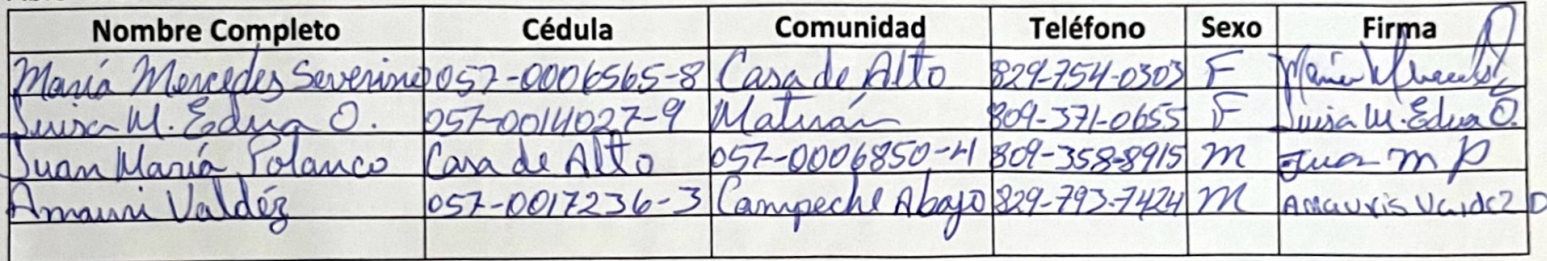 Nombre Completo Cédula Comunidad Teléfono Sexo Firma
María Mercedes Severino 057-0006565-8 Casa de Alto 829-754-0303 F
Luisa M. Edua O. 057-0014027-9 Matuán 809-371-0655 F Luisa M. Edua O.
Juan María Polanco Casa de Alto 057-0006850-4 809-358-8915 M Juan m p
Amauri Valdéz 057-0017236-3 Campeche Abajo 829-793-7424 M Amauris Valdez D